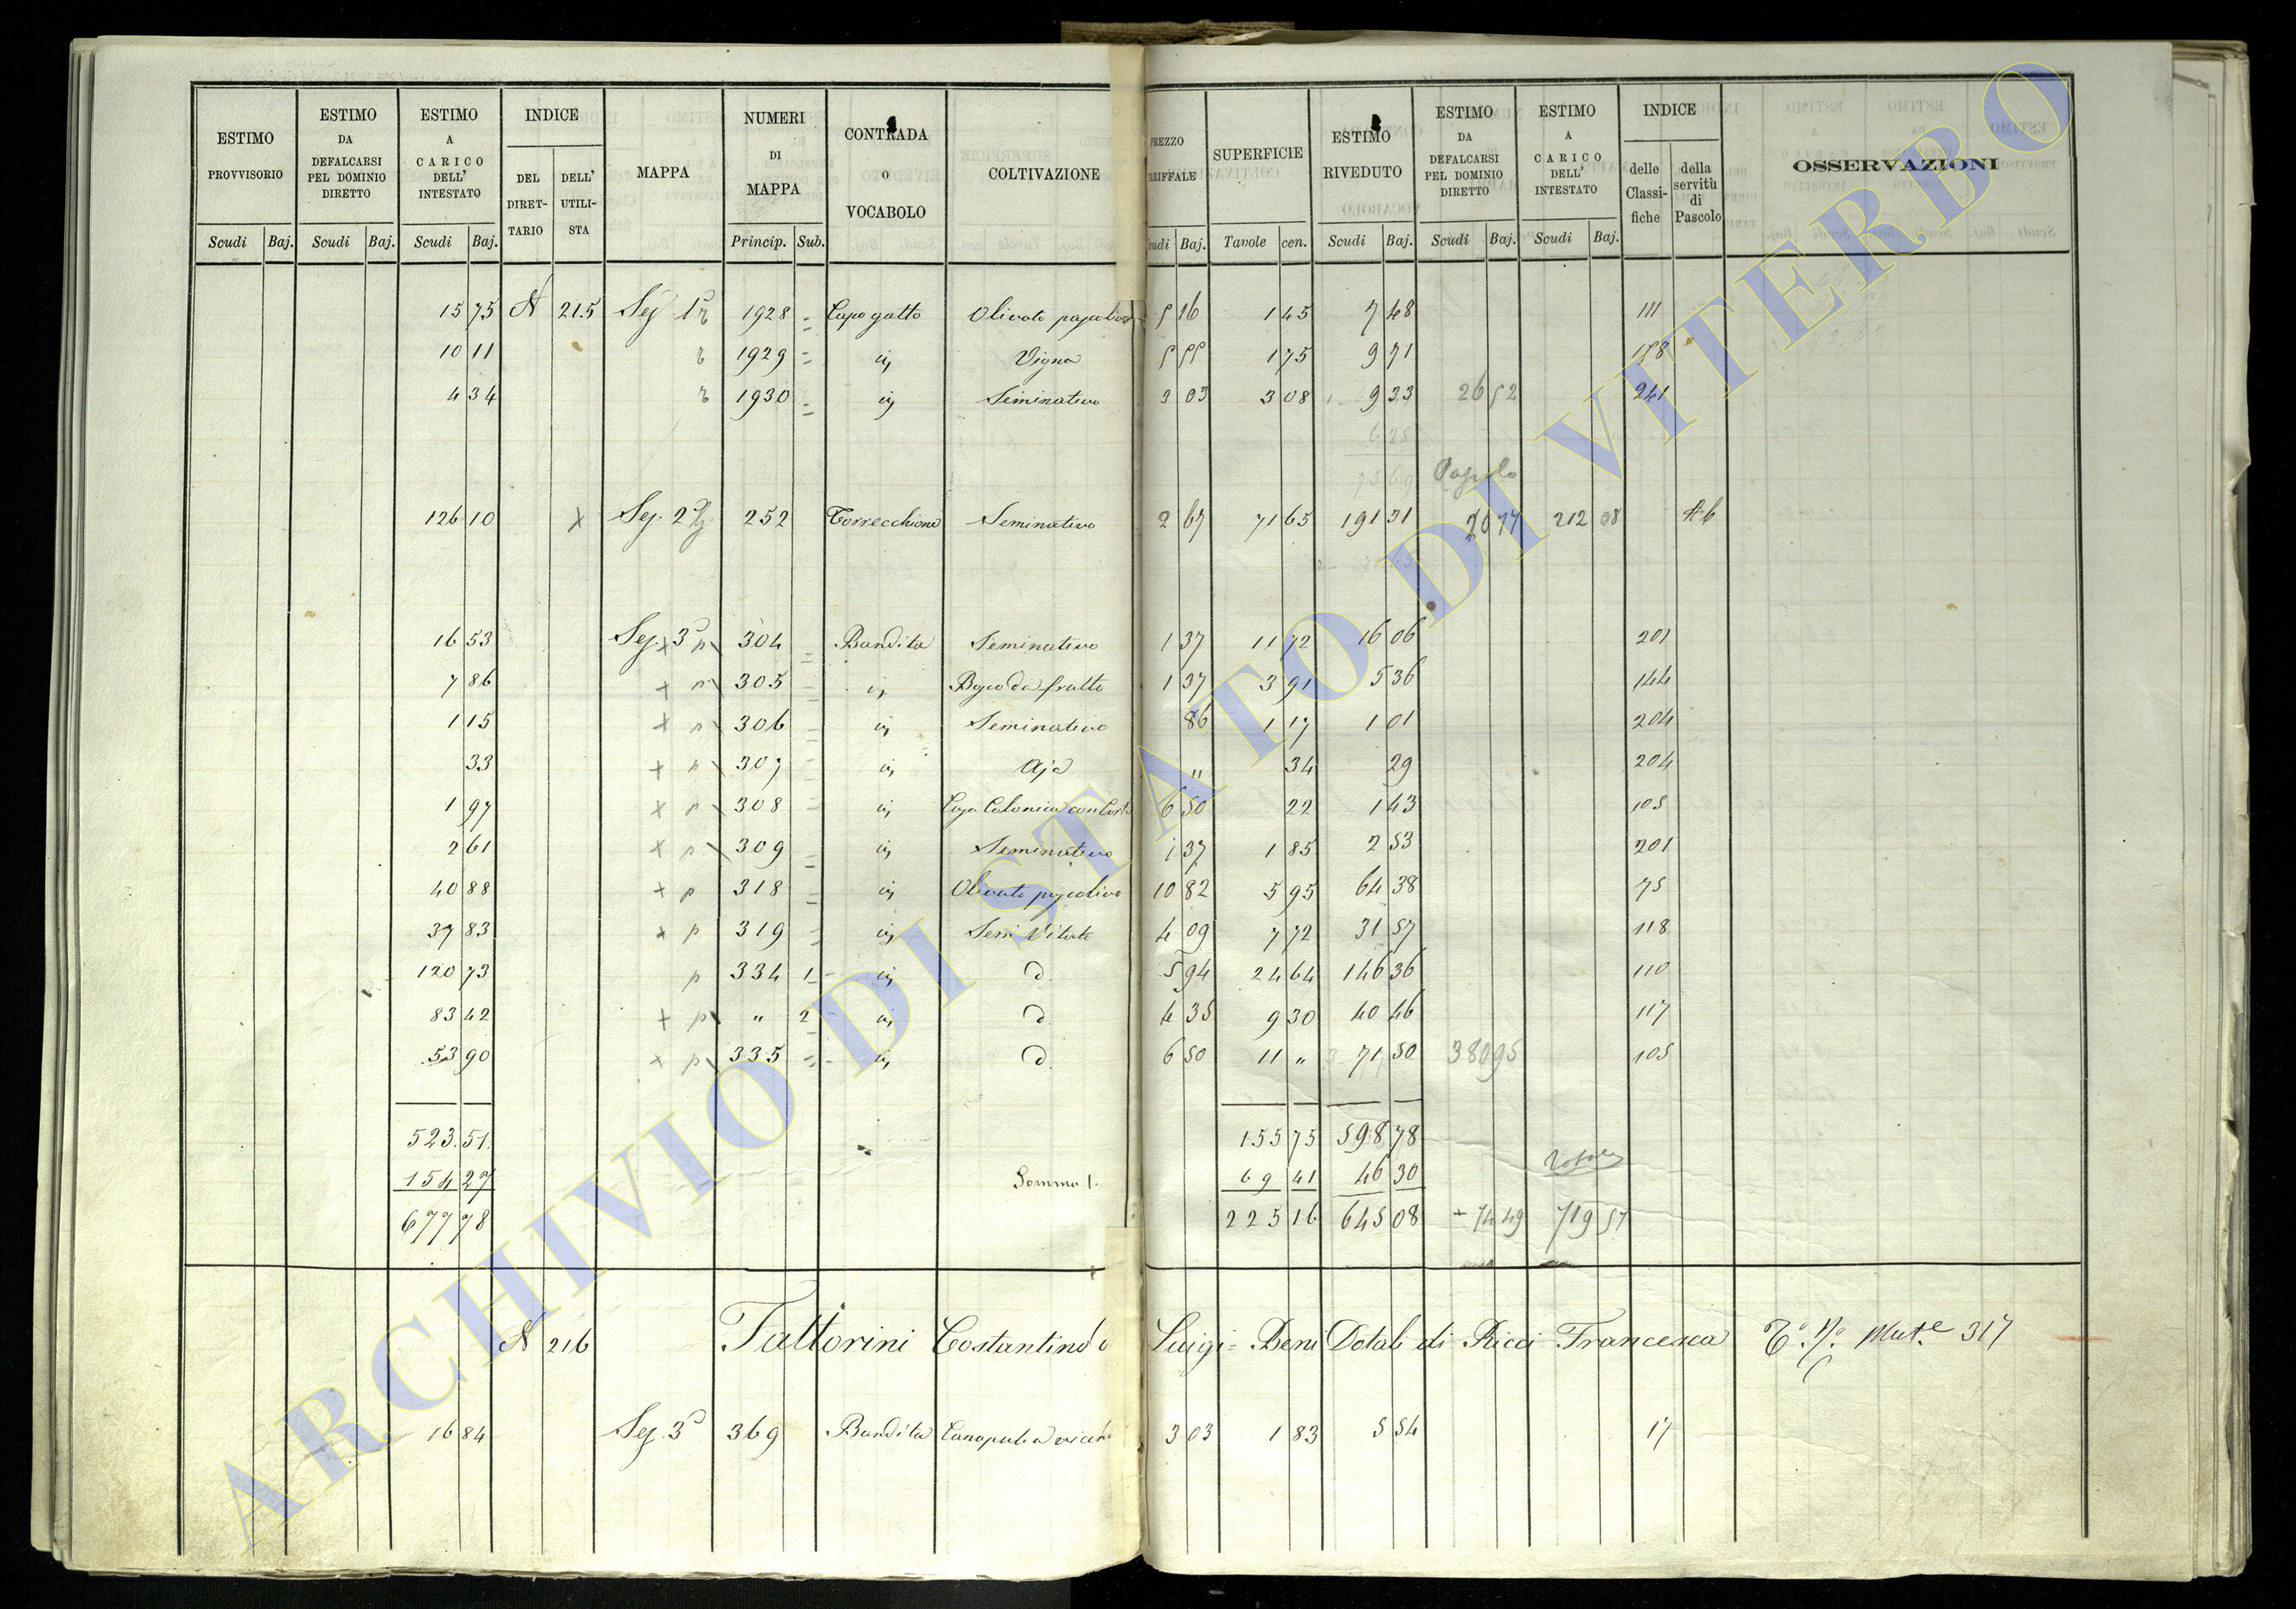 ESTIMO PROVVISORIO | ESTIMO DA DEFALCARSI PEL DOMINIO DIRETTO | ESTIMO A CARICO DELL' INTESTATO | INDICE DEL DIRETTARIO | DELL' UTILISTA | MAPPA | NUMERI DI MAPPA | CONTRADA o VOCABOLO | COLTIVAZIONE | PREZZO TARIFFALE | SUPERFICIE | ESTIMO RIVEDUTO | ESTIMO DA DEFALCARSI PEL DOMINIO DIRETTO | ESTIMO A CARICO DELL' INTESTATO | INDICE delle Classifiche | della servitù di Pascolo | OSSERVAZIONI
Scudi Baj. Scudi Baj. Scudi Baj. Princip. Sub. Scudi Baj. Tavole cen. Scudi Baj. Scudi Baj. Scudi Baj.
15 75 N 215 Sez. 1ª 1928 = Capo gatto Olivato 5 16 1 45 7 48 111
10 11 1929 = ij Vigna 5 55 1 75 9 71 178
4 34 1930 = ij Seminativo 3 03 3 08 9 33 26 52 241
6 28
75 69
126 10 x Sez. 2ª 252 Torrecchione Seminativo 2 67 71 65 191 31 212 08
16 53 Sez. 3ª x p 304 = Bandita Seminativo 1 37 11 72 16 06 201
7 86 x p 305 = ij Bosco da frutto 1 37 3 91 5 36 144
1 15 x p 306 = ij Seminativo 86 1 17 1 01 204
33 x p 307 = ij Aja " 34 29 204
1 97 x p 308 = ij Casa Colonica con Corte 6 50 22 1 43 105
2 61 x p 309 = ij Seminativo 1 37 1 85 2 53 201
40 88 x p 318 = ij Olivato pascolivo 10 82 5 95 64 38 75
37 83 x p 319 = ij Semi Vitato 4 09 7 72 31 57 118
120 73 p 334 1 ij d. 5 94 24 64 146 36 110
83 42 x p " 2 ij d. 4 35 9 30 40 46 117
53 90 x p 335 = ij d. 6 50 11 " 71 50 380 95 105
523.51. 155 75 598 78
154 27 Somma 1. 69 41 46 30
677 78 225 16 645 08 + 74 49 719 57
N 216 Fattorini Costantino Luigi - Beni Dotali di Ricci Francesca 317
16 84 Sez. 3ª 369 Bandita 3 03 1 83 5 54 17
ARCHIVIO DI STATO DI VITERBO